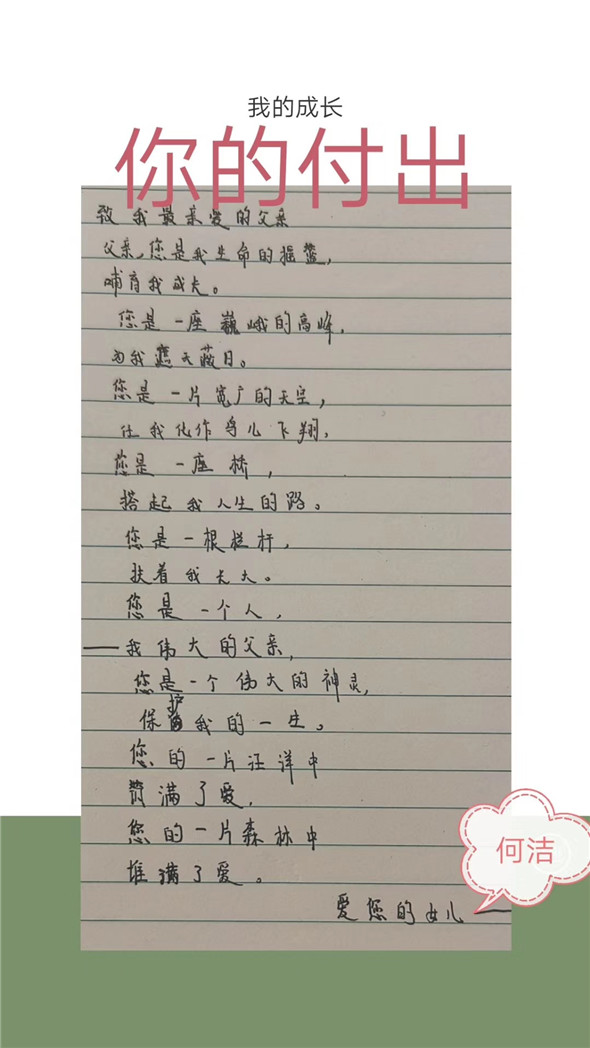 我的成长
你的付出
致我最亲爱的父亲
父亲,您是我生命的摇篮,
哺育我成长。
您是一座巍峨的高峰,
为我遮天蔽日。
您是一片宽广的天空,
任我化作鸟儿飞翔,
您是一座桥,
搭起我人生的路。
您是一根栏杆,
扶着我长大。
您是一个人,
——我伟大的父亲,
您是一个伟大的神灵,
保护我的一生。
您的一片汪洋中
满了爱,
您的一片森林中
堆满了爱。
爱您的女儿——
何洁